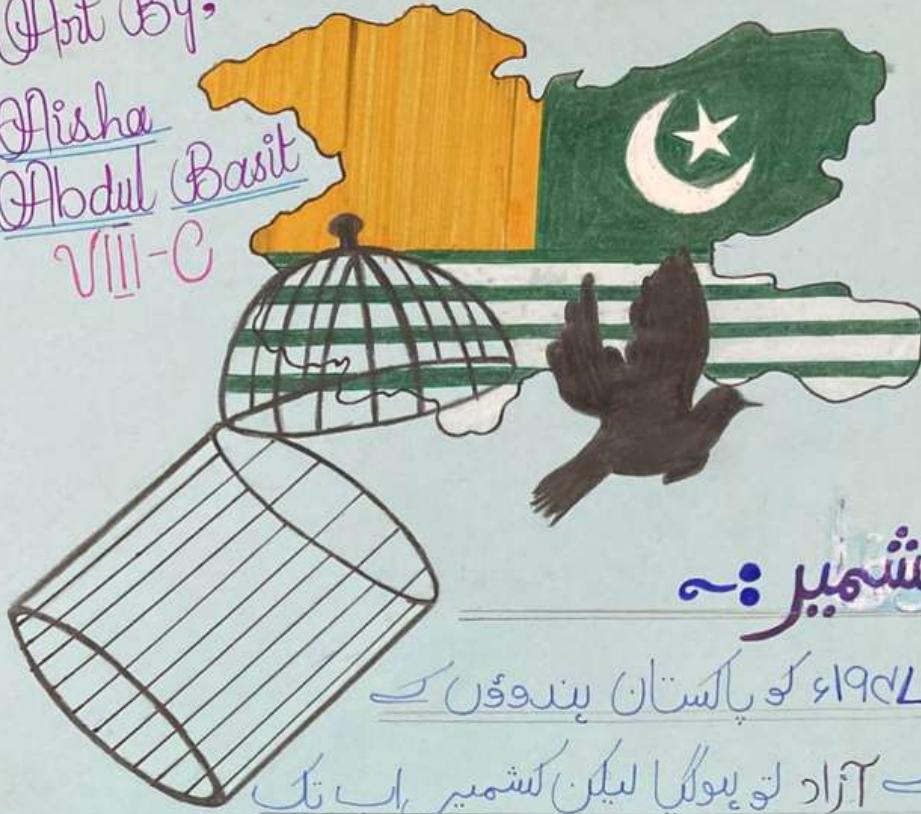 Art By,
Aisha
Abdul Basit
VIII-C
شمیر :~
۱۹۴۷ء کو پاکستان ہندوؤں کے
آزاد تو ہوگیا لیکن کشمیر اب تک